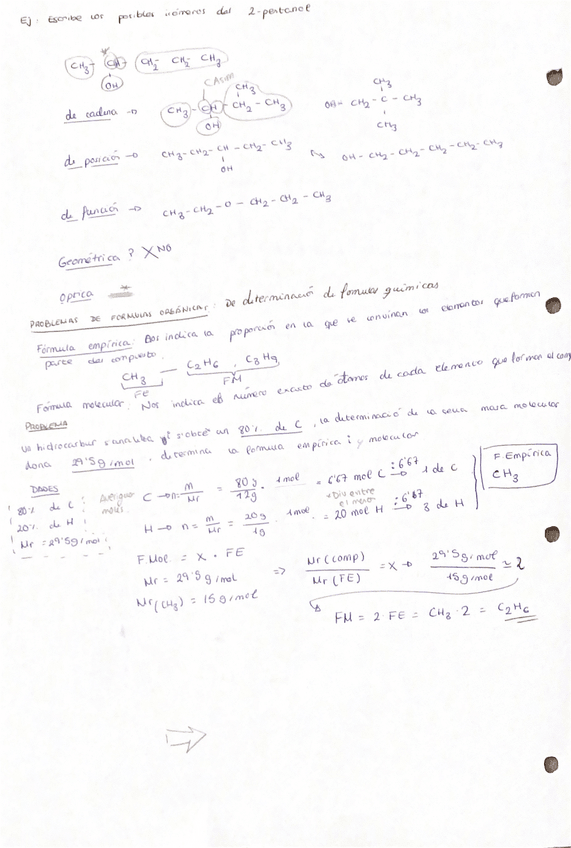 Ej: Escribe los posibles isómeros del 2-pentanol
CH3 - CH - CH2 - CH2 - CH3
OH
CAsim
de cadena → CH3 - CH - CH - CH2 - CH3
CH3
OH
CH3
OH - CH2 - C - CH3
CH3
de posición → CH3 - CH2 - CH - CH2 - CH3
OH
OH - CH2 - CH2 - CH2 - CH2 - CH3
de función → CH3 - CH2 - O - CH2 - CH2 - CH3
Geométrica? X NO
óptica *
PROBLEMAS DE FORMULAS ORGÁNICAS: De determinació de fórmules químicas
Fórmula empírica: Nos indica la proporción en la que se convinan los elementos que forman
parte del compuesto.
CH3 — C2H6, C3H9
FE FM
Fórmula molecular: Nos indica el número exacto de átomos de cada elemento que forman el comp
PROBLEMA
Un hidrocarbur s'analitza i s'obté un 80% de C, la determinació de la seua masa molecular
dona 29'5 g/mol, determina la fórmula empírica i y molecular
DADES
80% de C
20% de H
Mr = 29'5 g/mol
C → n = m/Mr = 80g/12g · 1mol = 6'67 mol C :6'67 → 1 de C
÷Div entre el menor
H → n = m/Mr = 20g/1g · 1mol = 20 mol H :6'67 → 3 de H
F. Empírica
CH3
F.Mol. = X · FE
Mr = 29'5 g/mol
Mr(CH3) = 15 g/mol
⇒ Mr (comp)/Mr (FE) = X → 29'5 g/mol/15 g/mol ≃ 2
FM = 2 · FE = CH3 · 2 = C2H6